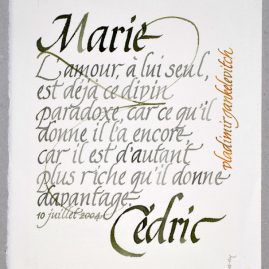 Marie
L'amour, à lui seul,
est déjà ce divin
paradoxe, car ce qu'il
donne il l'a encore
car il est d'autant
plus riche qu'il donne
davantage.
10 juillet 2004
Cédric
vladimir jankelevitch